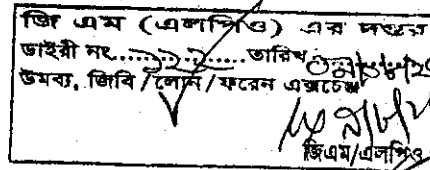 জি এম (এলপিও) এর দপ্তর
ডাইরী নং.....২২২.....তারিখ
উমব্য, জিবি/লোন/ফরেন এক্সচেঞ্জ
জিএম/এলপিও